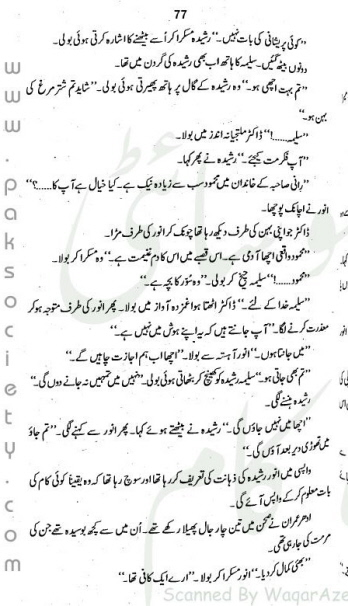 77
"کوئی پریشانی کی بات نہیں۔" رشیدہ مسکرا کر اُسے بیٹھنے کا اشارہ کرتی ہوئی بولی۔
دونوں بیٹھ گئیں۔ سلیمہ کا ہاتھ اب بھی رشیدہ کی گردن میں تھا۔
"تم بہت اچھی ہو۔" وہ رشیدہ کے گال پر ہاتھ پھیرتی ہوئی بولی۔ "شاید تم شتر مرغ کی
بہن ہو۔"
"سلیمہ......!" ڈاکٹر ملتجیانہ انداز میں بولا۔
"آپ فکر مت کیجئے۔" رشیدہ نے پھر کہا۔
"رانی صاحبہ کے خاندان میں محمود سب سے زیادہ نیک ہے۔ کیا خیال ہے آپ کا.....؟"
انور نے اچانک پوچھا۔
ڈاکٹر جو اپنی بہن کی طرف دیکھ رہا تھا چونک کر انور کی طرف مڑا۔
"محمود واقعی اچھا آدمی ہے۔ اس قصبے میں اس کا دم غنیمت ہے۔" وہ مسکرا کر بولا۔
"محمود.....!" سلیمہ چیخ کر بولی۔ "وہ سُور کا بچہ ہے۔"
"سلیمہ خدا کے لئے۔" ڈاکٹر اٹھتا ہوا غمزدہ آواز میں بولا۔ پھر انور کی طرف متوجہ ہو کر
معذرت کرنے لگا۔ "آپ جانتے ہیں کہ یہ اپنے ہوش میں نہیں ہے۔"
"میں جانتا ہوں۔" انور آہستہ سے بولا۔ "اچھا اب ہم اجازت چاہیں گے۔"
"تم بھی جاتی ہو۔" سلیمہ رشیدہ کو کھینچ کر بٹھاتی ہوئی بولی۔ "نہیں میں تمہیں نہ جانے دوں گی۔"
رشیدہ ہنسنے لگی۔
"اچھا میں نہیں جاؤں گی۔" رشیدہ نے بیٹھتے ہوئے کہا۔ پھر انور سے کہنے لگی۔ "تم جاؤ
میں تھوڑی دیر بعد آؤں گی۔"
واپسی میں انور رشیدہ کی ذہانت کی تعریف کر رہا تھا اور سوچ رہا تھا کہ وہ یقیناً کوئی کام کی
بات معلوم کر کے واپس آئے گی۔
ادھر عمران نے صحن میں تین چار جال پھیلا رکھے تھے۔ اُن میں سے کچھ بوسیدہ تھے جن کی
مرمت کی جا رہی تھی۔
"بھئی کمال کر دیا۔" انور مسکرا کر بولا۔ "ارے ایک کافی تھا۔"
www.paksociety.com
Scanned By WaqarAze